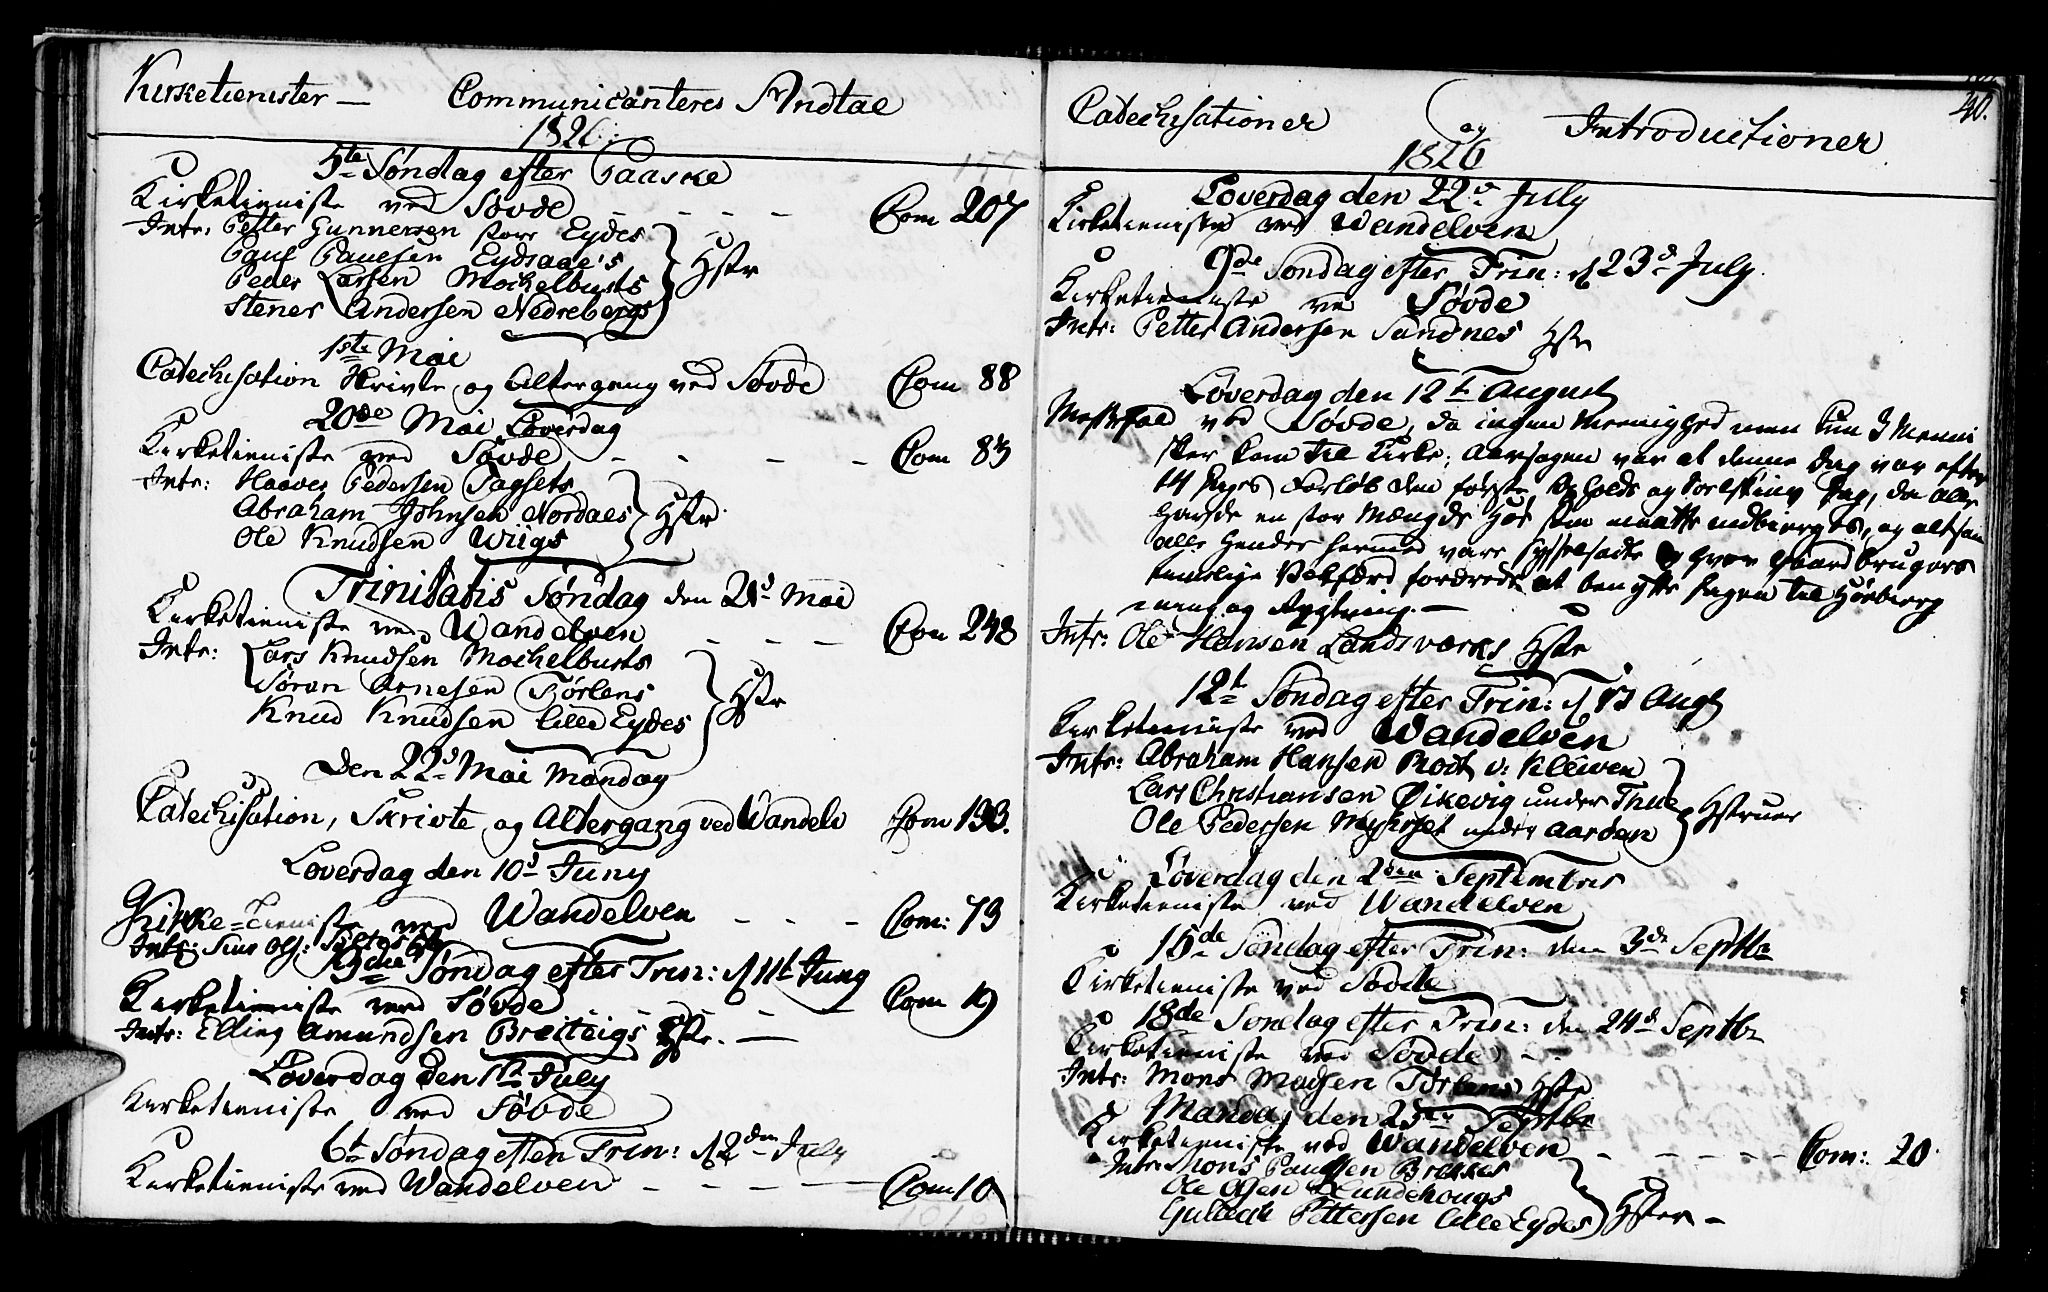 Kirketienister — Communicanteres Andtal
1826.
5te Søndag efter Paaske
Kirketieniste ved Søvde - - - - Com 207
Intr: Petter Gunnersen store Eydes
Paul Paulsen Eydsaae's
Peder Larsen Mochelbusts Hstr
Stener Andersen Nedrebergs
1ste Mai
Catechisation Skrivte og Altergang ved Søvde Com 88
20de Mai Løverdag
Kirketieniste ved Søvde - - - - Com 83
Intr: Haaver Pedersen Sagsets
Abraham Johnsen Nordaes Hstr
Ole Knudsen Wiigs
Trinitatis Søndag den 21d Mai
Kirketieniste ved Wandelven - - - Com 248
Intr: Lars Knudsen Mochelbusts
Søren Arnesen Tørlens Hstr
Knud Knudsen lille Eydes
Den 22d Mai Mandag
Catechisation, Skrivte og Altergang ved Wandelv Com 193.
Løverdag den 10d Juny
Kirke=tieniste ved Wandelven - - - Com: 73
Intr:
3die Søndag efter Trin: d 11t Juny
Kirketieniste ved Søvde - - - - Com 19
Intr: Elling Amundsen Breiteigs Hstr. —
Løverdag den 1te July
Kirketieniste ved Søvde
6t Søndag efter Trin: d 2den July
Kirketieniste ved Wandelven - - - Com 10
40.
Catechisationer og Introductioner
1826
Løverdag den 22d July
Kirketieniste ved Wandelven
9de Søndag efter Trin: d 23d July.
Kirketieniste ved Søvde
Intr: Petter Andersen Sandnes Hstr
Løverdag den 12t August
Messefald ved Søvde, da ingen Meenighed men kun 3 Menni
sker kom til Kirke; Aarsagen var at denne Dag var efter
14 Dages Forløb den første Opholds og Dag, da alle
havde en stor Mængde Høe som maatte indbierges, og altsaa
alle Hænder hermed vare sysselsadte og hver Gaardbrugers
timelige Velfærd fordrede at benytte Dagen til Høebierg
ning og Røgtning. —
Intr: Ole Hansen Landsværks Hstr
12t Søndag efter Trin: d 13 Augt
Kirketieniste ved Wandelven
Intr: Abraham Hansen Rodt v: Kleven
Lars Christiansen Øikevig under Thue Hstruer
Ole Pedersen Myhrset under Aarøen
Løverdag den 2den Septembris
Kirketieniste ved Wandelven
15de Søndag efter Trin: den 3de Septbr
Kirketieniste ved Søvde
18de Søndag efter Trin: den 24d Septbr
Kirketieniste ved Søvde - -
Intr: Mons Madsen Tørlens Hstr
Mandag den 25de Septbr
Kirketieniste ved Wandelven - - - - - Com: 20.
Intr: Mons Paulsen Brekkes
Ole Olsen Hundehougs Hstr —
Gullack Pettersen lille Eydes